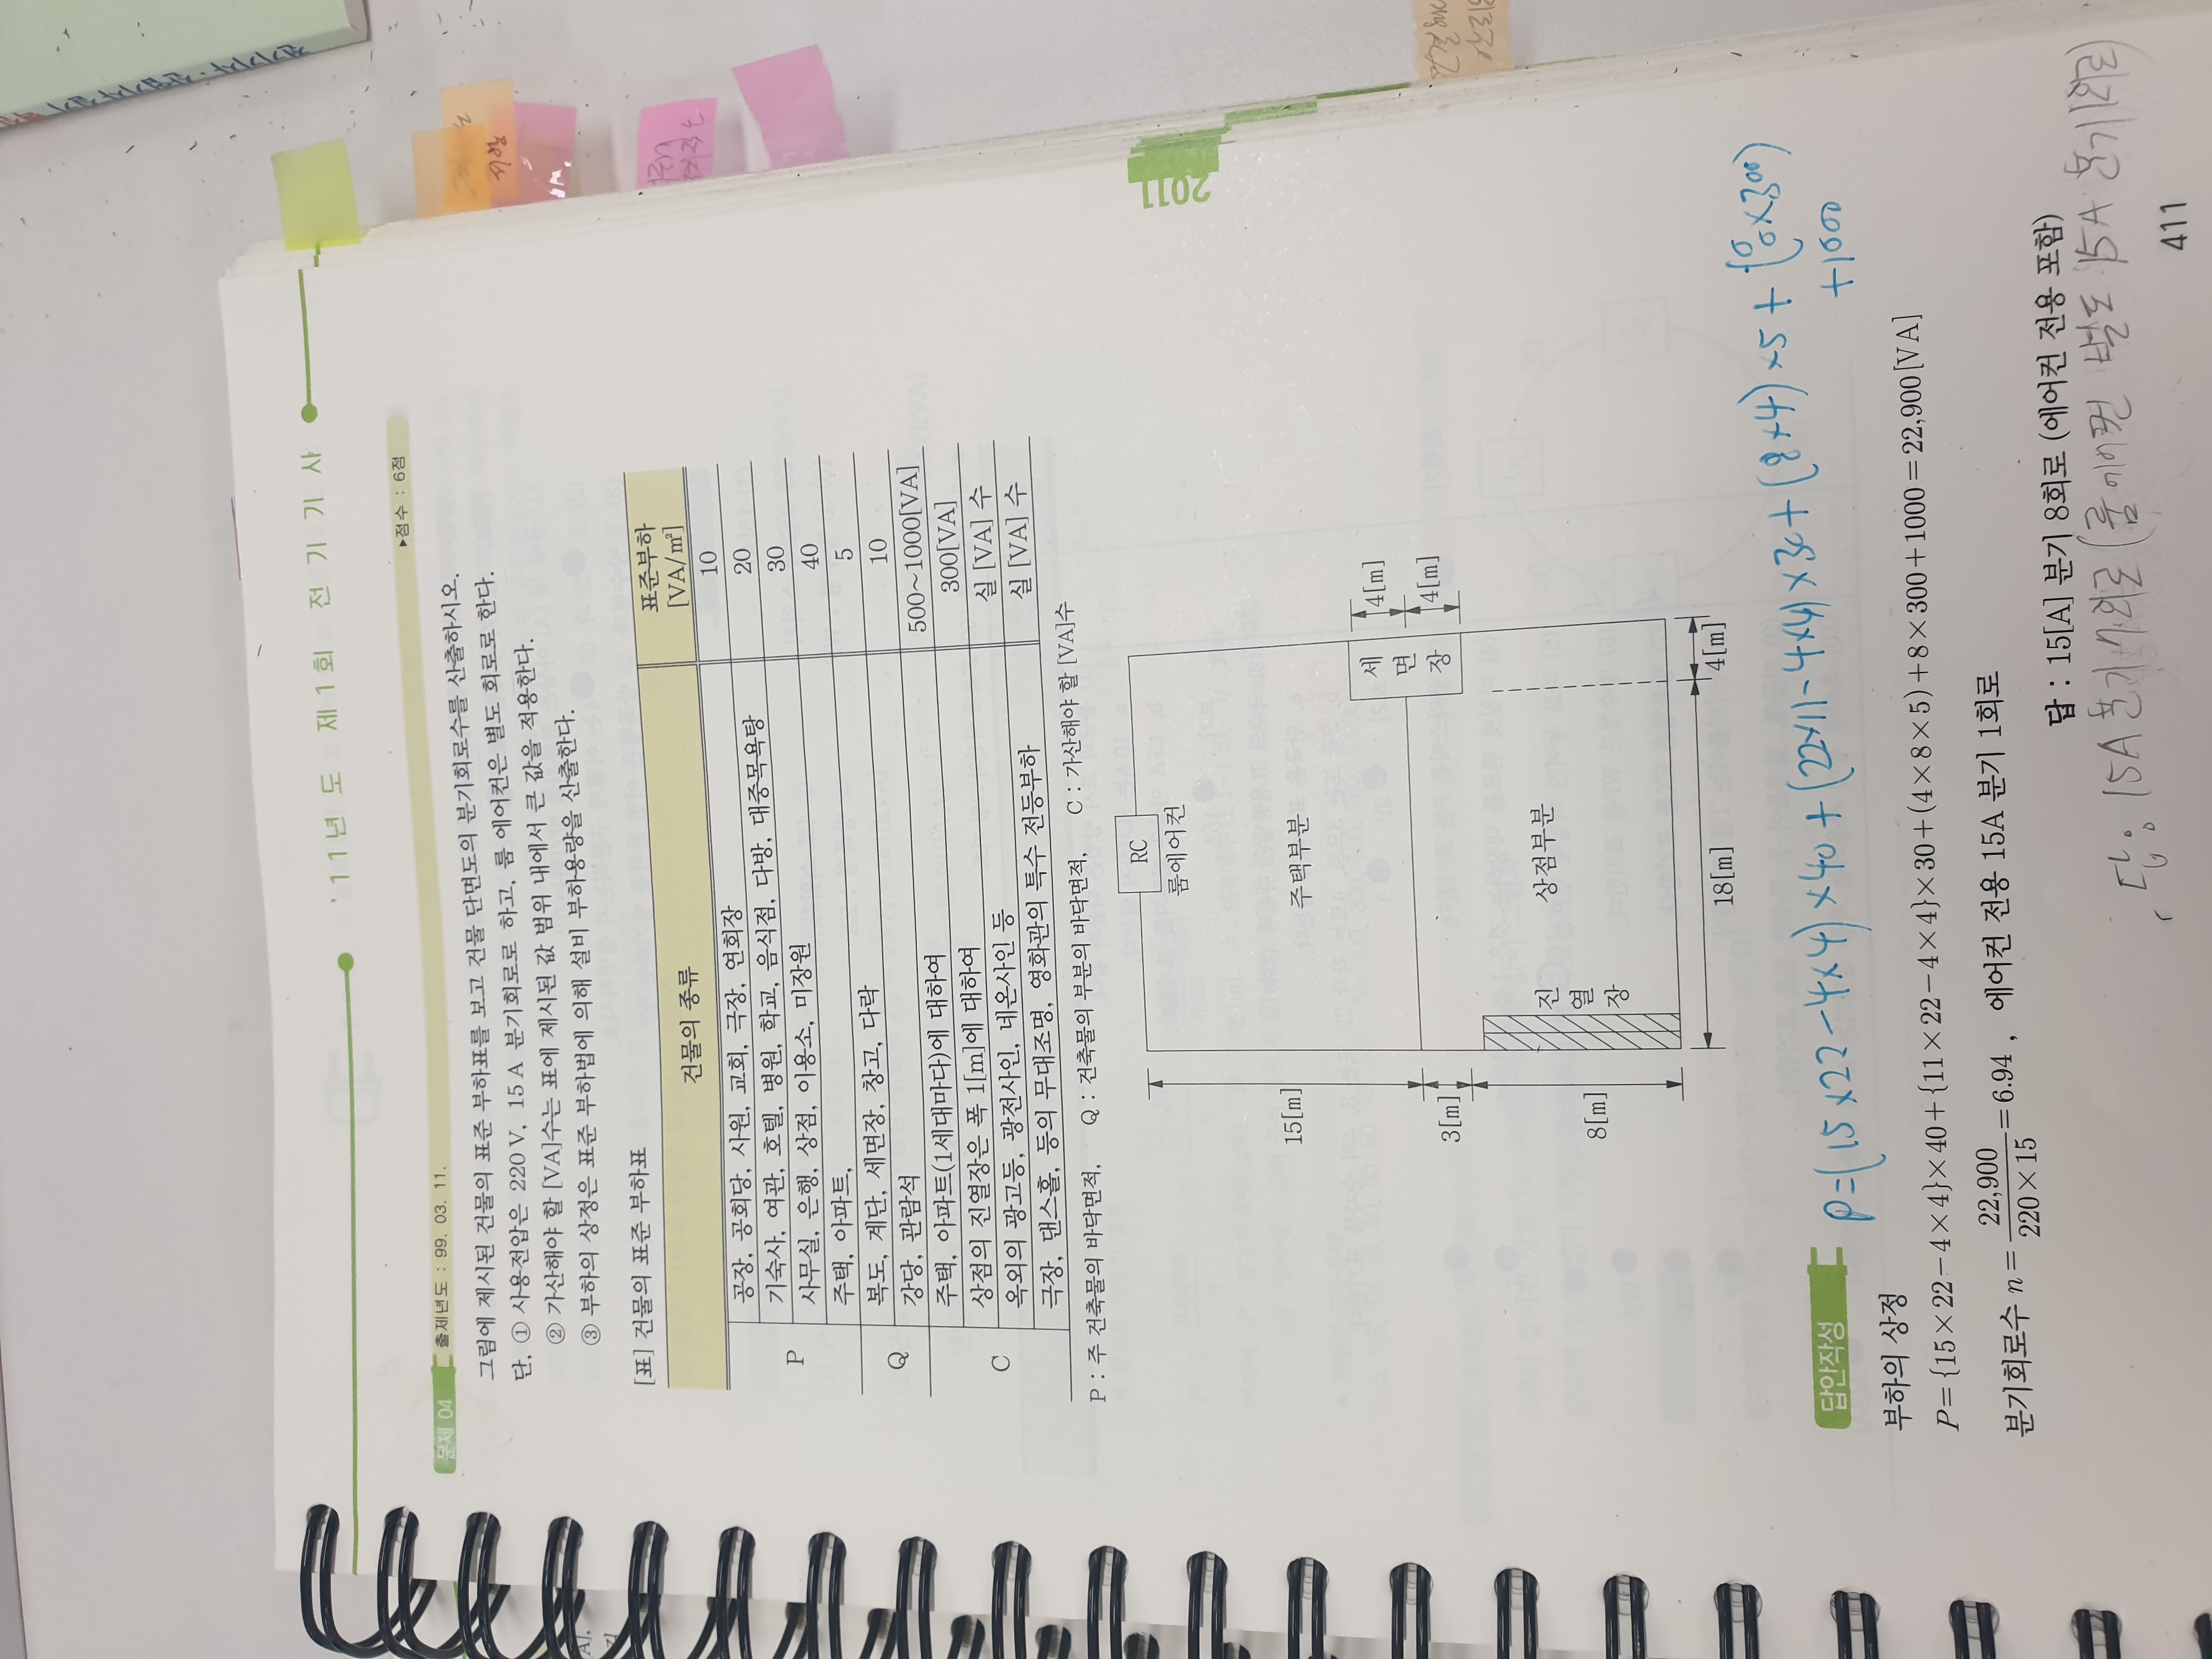 '11년도 제1회 전기기사
문제 04 출제년도 : 99. 03. 11. ▶점수 : 6점
그림에 제시된 건물의 표준 부하표를 보고 건물 단면도의 분기회로수를 산출하시오.
단, ① 사용전압은 220 V, 15 A 분기회로로 하고, 룸 에어컨은 별도 회로로 한다.
② 가산해야 할 [VA]수는 표에 제시된 값 범위 내에서 큰 값을 적용한다.
③ 부하의 상정은 표준 부하법에 의해 설비 부하용량을 산출한다.
[표] 건물의 표준 부하표
건물의 종류 표준부하 [VA/㎡]
P 공장, 공회당, 사원, 교회, 극장, 연회장 10
기숙사, 여관, 호텔, 병원, 학교, 음식점, 다방, 대중목욕탕 20
사무실, 은행, 상점, 이용소, 미장원 30
주택, 아파트, 40
Q 복도, 계단, 세면장, 창고, 다락 5
강당, 관람석 10
C 주택, 아파트(1세대마다)에 대하여 500~1000[VA]
상점의 진열장은 폭 1[m]에 대하여 300[VA]
옥외의 광고등, 광전사인, 네온사인 등 실 [VA] 수
극장, 댄스홀, 등의 무대조명, 영화관의 특수 전등부하 실 [VA] 수
P : 주 건축물의 바닥면적, Q : 건축물의 부분의 바닥면적, C : 가산해야 할 [VA]수
RC
룸에어컨
15[m]
주택부분
세
면
장
4[m]
4[m]
3[m]
8[m]
진
열
장
상점부분
18[m]
4[m]
2011
P=(15×22-4×4)×40+(22×11-4×4)×30+(8×4)×5+(8×300)
+1000
답안작성
부하의 상정
P={15×22-4×4}×40+{11×22-4×4}×30+(4×8×5)+8×300+1000=22,900[VA]
분기회로수 n=22,900/220×15=6.94 , 에어컨 전용 15A 분기 1회로
답 : 15[A] 분기 8회로 (에어컨 전용 포함)
답: 15A 분기 7회로 (룸에어컨 별도 15A 분기 1회로)
411